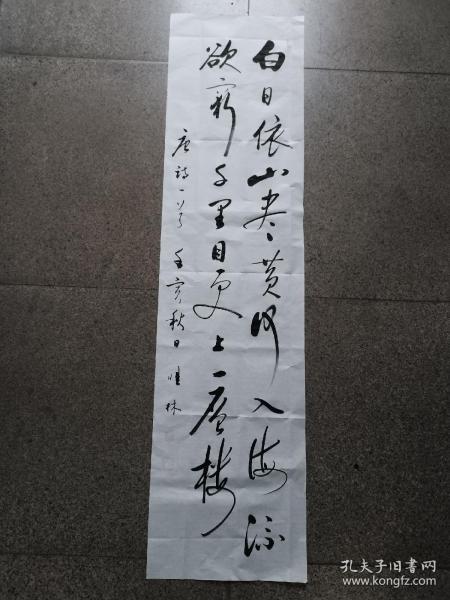 白日依山尽黄河入海流
欲穷千里目更上一层楼
唐诗一首 壬寅秋日 林
孔夫子旧书网
www.kongfz.com